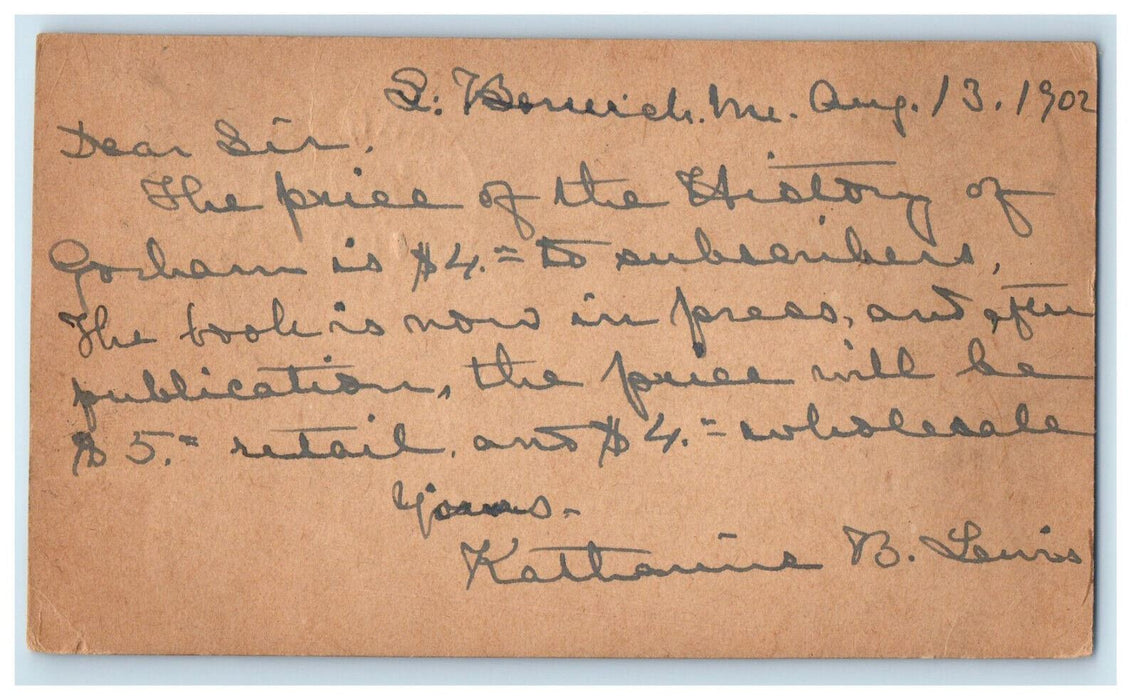 S. Berwick. Me. Aug. 13. 1902
Dear Sir,
The price of the History of
Gorham is $4.= to subscribers.
The book is now in press, and after
publication, the price will be
$5.= retail, and $4.= wholesale
Yours-
Katharine B. Lewis